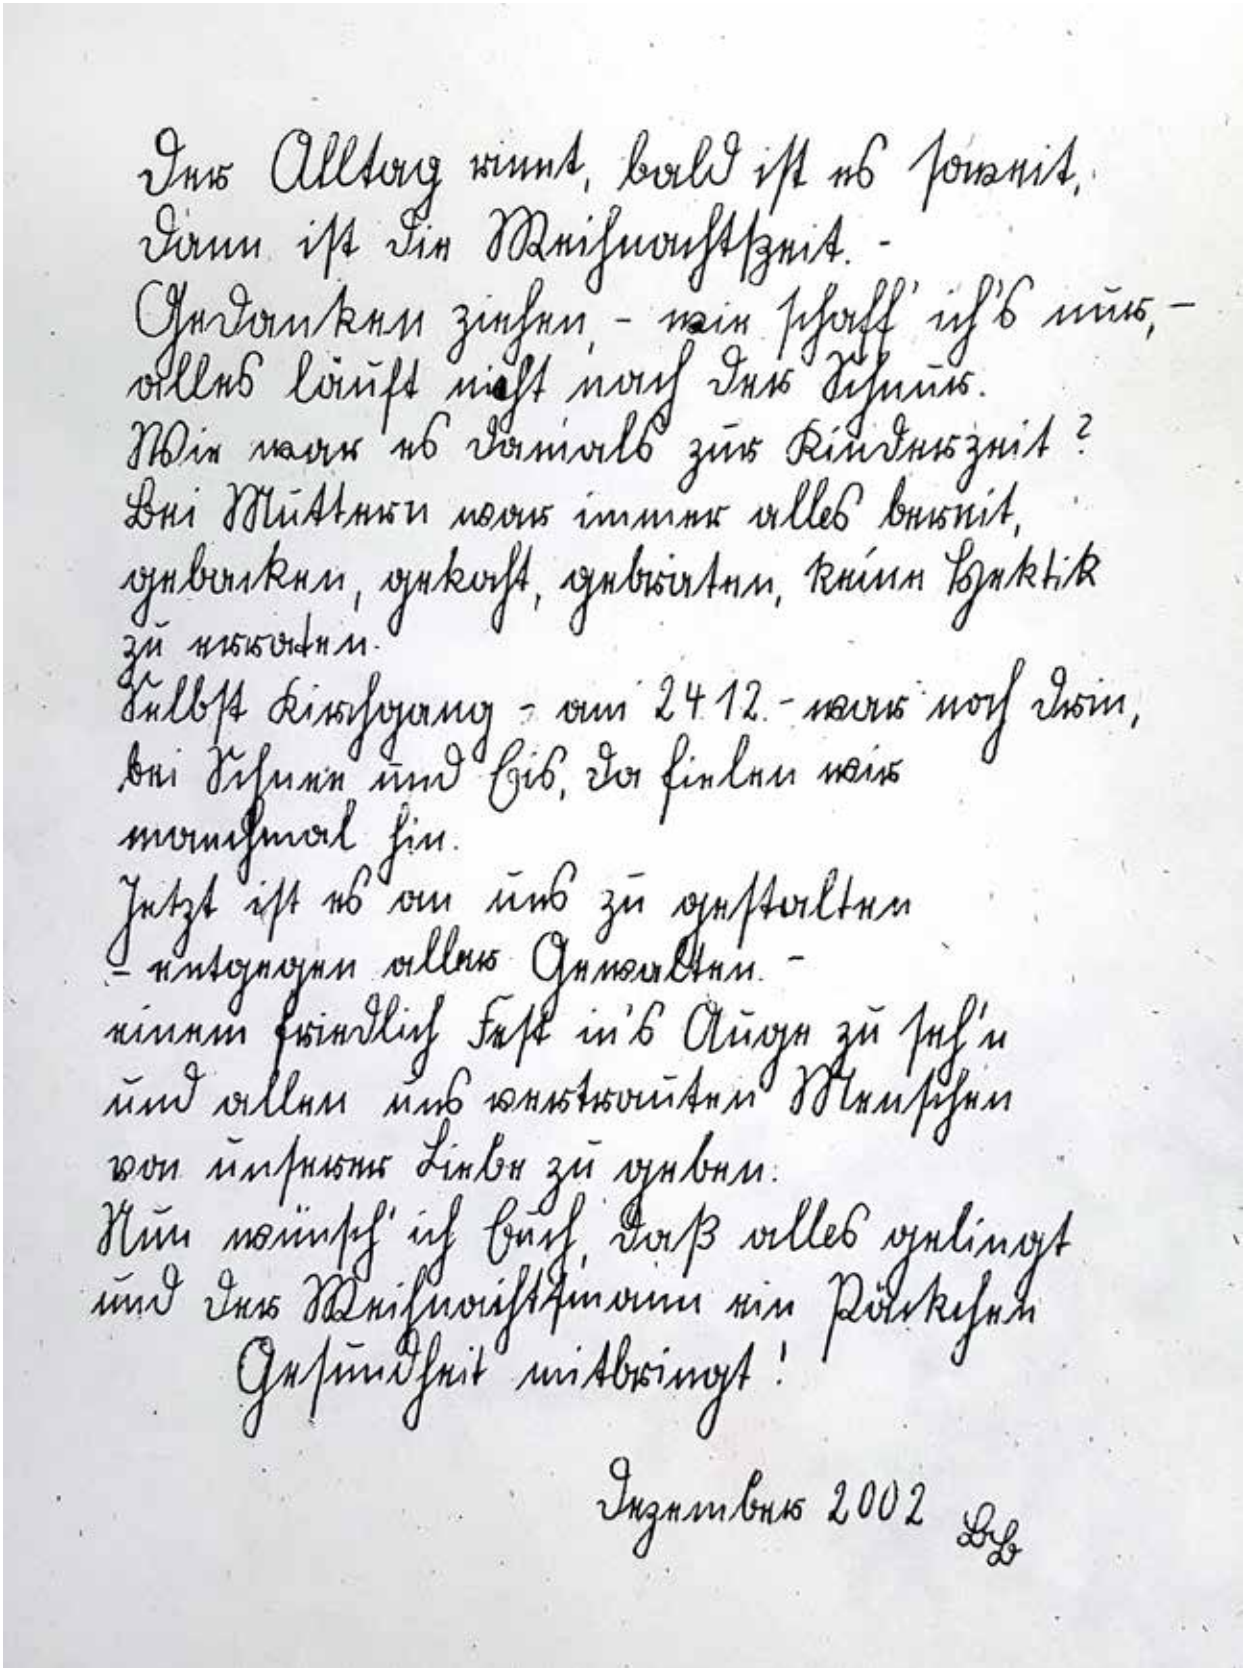 Der Alltag rinnt, bald ist es soweit,
dann ist die Weihnachtszeit. -
Gedanken ziehen, - wie schaff' ich's nur, -
alles läuft nicht nach der Schnur.
Wie war es damals zur Kinderzeit?
Bei Muttern war immer alles bereit,
gebacken, gekocht, gebraten, keine Hektik
zu erraten.
Selbst Kirchgang - am 24.12. - war noch drin,
bei Schnee und Eis, da fielen wir
manchmal hin.
Jetzt ist es an uns zu gestalten
- entgegen aller Gewalten. -
einem friedlich Fest in's Auge zu seh'n
und allen uns vertrauten Menschen
von unserer Liebe zu geben.
Nun wünsch' ich Euch, daß alles gelingt
und der Weihnachtsmann ein Päckchen
Gesundheit mitbringt!
Dezember 2002